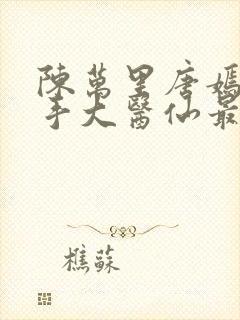 陳萬里唐嫣
手大醫仙最
樵蘇